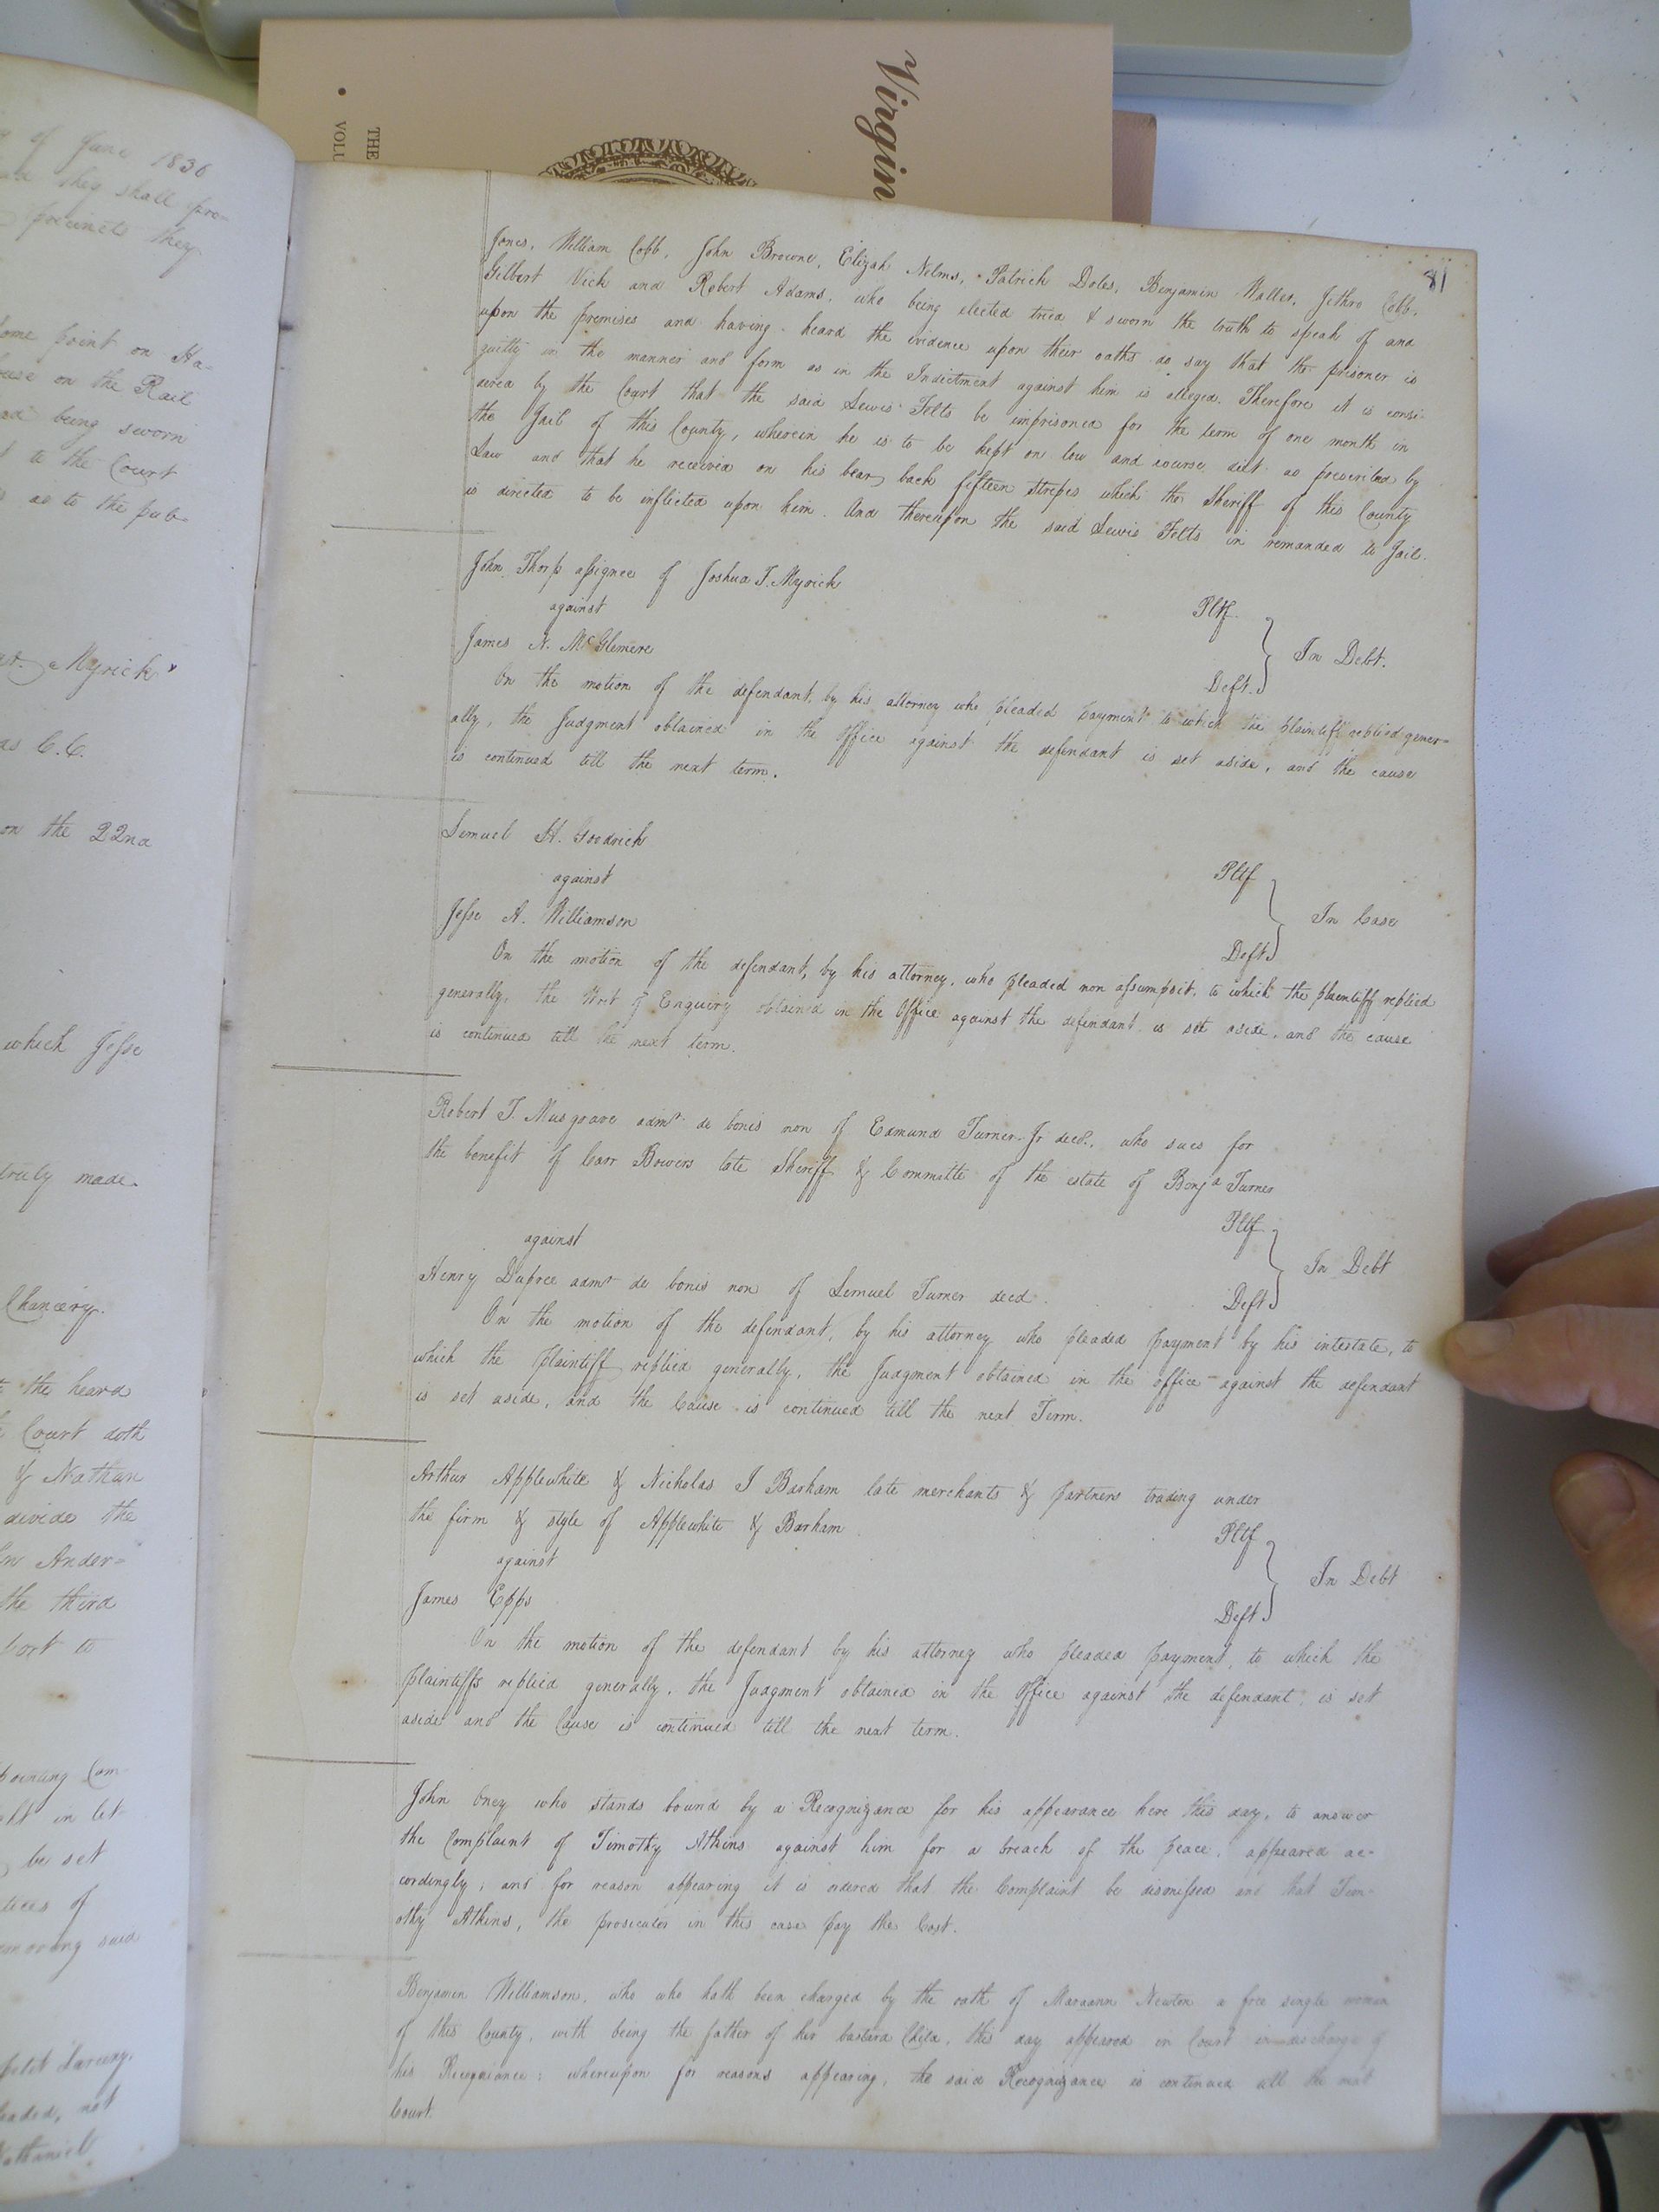 Virgin
THE
VOLU
of June 1836
they shall pro-
precincts they
some point on Ha-
on the Rail
being sworn
to the Court
as to the pub-
Myrick
C.C.
on the 22nd
which Jesse
truly made.
Chancery.
the heard
Court doth
of Nathan
divide the
Ander=
the third
to
pointing Com-
in let
be set
of
removing said
petit Larceny.
pleaded, not
Nathaniel
81
Jones, William Cobb, John Browne, Elizah Nelms, Patrick Doles, Benjamin Waller, Jethro Cobb,
Gilbert Vick and Robert Adams, who being elected tried & sworn the truth to speak of and
upon the premises and having heard the evidence upon their oaths do say that the prisoner is
guilty in the manner and form as in the Indictment against him is alleged. Therefore it is consi-
dered by the Court that the said Lewis Felts be imprisoned for the term of one month in
the Jail of this County, wherein he is to be kept on low and course diet as prescribed by
Law and that he received on his bear back fifteen stripes which the Sheriff of this County
is directed to be inflicted upon him. And thereupon the said Lewis Felts in remanded to Jail.
John Thorp assignee of Joshua T. Myrick
Pltf.
against
In Debt.
James N. McGlemere
Deft.
On the motion of the defendant, by his attorney who pleaded payment to which the plaintiff replied gener=
ally, the Judgment obtained in the office against the defendant is set aside, and the cause
is continued till the next term.
Lemuel H. Goodrich
Pltf
against
In Case
Jesse A. Williamson
Deft
On the motion of the defendant, by his attorney, who pleaded non assumpsit, to which the plaintiff replied
generally, the Writ of Enquiry obtained in the Office against the defendant is set aside, and the cause
is continued till the next term.
Robert T. Musgrave admr de bonis non of Edmund Turner Jr decd., who sues for
the benefit of Carr Bowers late Sheriff & Committe of the estate of Benja Turner
Pltf
against
In Debt
Henry Dupree admr de bonis non of Lemuel Turner decd.
Deft
On the motion of the defendant, by his attorney who pleaded payment by his intestate, to
which the plaintiff replied generally, the Judgment obtained in the office against the defendant
is set aside, and the Cause is continued till the next Term.
Arthur Applewhite & Nicholas J Barham late merchants & partners trading under
the firm & style of Applewhite & Barham
Pltf
against
In Debt
James Epps
Deft
On the motion of the defendant by his attorney who pleaded payment, to which the
plaintiffs replied generally, the Judgment obtained in the office against the defendant, is set
aside and the Cause is continued till the next term.
John Oney who stands bound by a Recognizance for his appearance here this day, to answer
the Complaint of Timothy Atkins against him for a breach of the peace, appeared ac-
cordingly; and for reason appearing it is ordered that the Complaint be dismissed and that Tim-
othy Atkins, the prosecutor in this case pay the Cost.
Benjamin Williamson, who who hath been charged by the oath of Maraann Newton a free single woman
of this County, with being the father of her bastard Child, this day appeared in Court in discharge of
his Recognizance; whereupon for reasons appearing, the said Recognizance is continued till the next
Court.